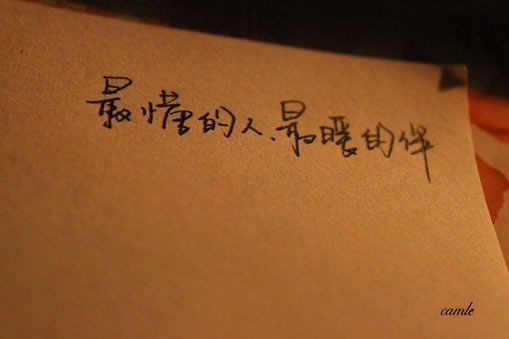 最懂的人、最暖的伴
camle